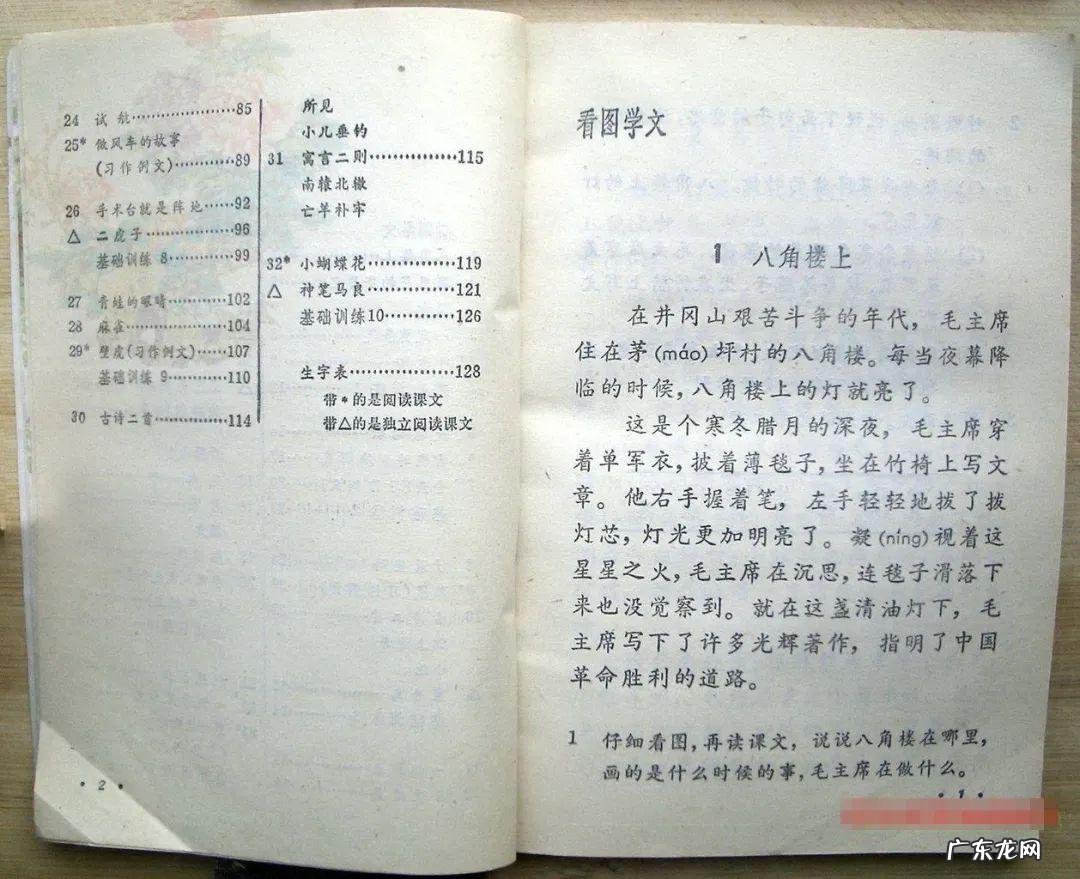 24 试航…………………85
25* 做风车的故事
(习作例文)…………89
26 手术台就是阵地……92
△ 二虎子………………96
基础训练 8……………99
27 青蛙的眼睛…………102
28 麻雀…………………104
29* 壁虎(习作例文)……107
基础训练 9……………110
30 古诗二首……………114
所见
小儿垂钓
31 寓言二则……………115
南辕北辙
亡羊补牢
32* 小蝴蝶花……………119
△ 神笔马良……………121
基础训练10……………126
生字表…………………128
带*的是阅读课文
带△的是独立阅读课文
· 2 ·
看图学文
1 八角楼上
在井冈山艰苦斗争的年代，毛主席
住在茅(máo)坪村的八角楼。每当夜幕降
临的时候，八角楼上的灯就亮了。
这是个寒冬腊月的深夜，毛主席穿
着单军衣，披着薄毯子，坐在竹椅上写文
章。他右手握着笔，左手轻轻地拨了拨
灯芯，灯光更加明亮了。凝(níng)视着这
星星之火，毛主席在沉思，连毯子滑落下
来也没觉察到。就在这盏清油灯下，毛
主席写下了许多光辉著作，指明了中国
革命胜利的道路。
1 仔细看图，再读课文，说说八角楼在哪里，
画的是什么时候的事，毛主席在做什么。
· 1 ·
广东龙网